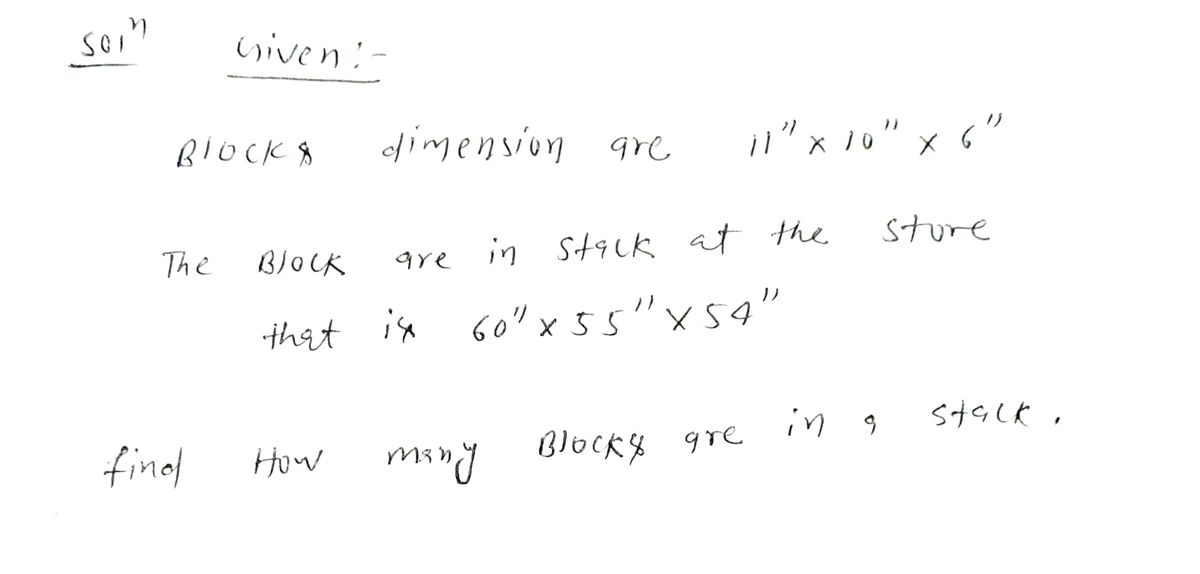 Soln Given :-
Blocks dimension are 11" x 10" x 6"
The Block are in stack at the store
that is 60" x 55" x 54"
find How many Blocks are in a stack.